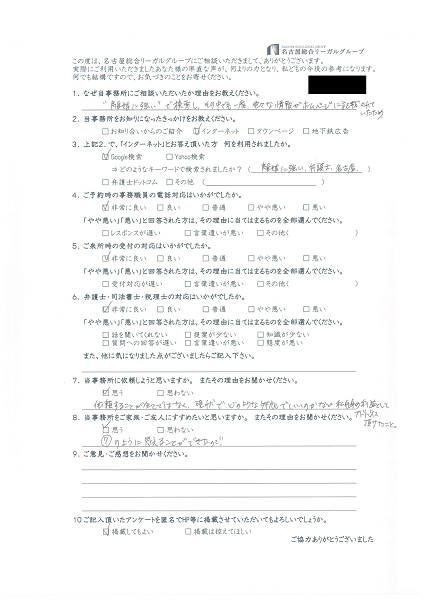 NAGOYA SOGO LEGAL GROUP
名古屋総合リーガルグループ
この度は、名古屋総合リーガルグループにご相談いただきまして、ありがとうございます。
実際にご利用いただきましたあなた様の率直な声が、何よりの力となり、私どもの今後の参考になります。
何でも結構ですので、お気づきのことをお寄せください。
1.なぜ当事務所にご相談いただいたか理由をお教えください。
"離婚に強い" で検索し、その中でも一番、色々な情報がホームページに記載されて
いたため
2.当事務所をお知りになったきっかけをお教えください。
□お知り合いからのご紹介 ☑インターネット □タウンページ □地下鉄広告
3.上記2.で、「インターネット」とお答え頂いた方 何を利用されましたか。
☑Google検索 □Yahoo検索
⇒どのようなキーワードで検索されましたか?( 離婚に強い、弁護士、名古屋 )
□弁護士ドットコム □その他 ( )
4.ご予約時の事務職員の電話対応はいかがでしたか。
☑非常に良い □良い □普通 □やや悪い □悪い
「やや悪い」「悪い」と回答された方は、その理由に当てはまるものを全部選んでください。
□レスポンスが遅い □言葉遣いが悪い □その他( )
5.ご来所時の受付の対応はいかがでしたか。
☑非常に良い □良い □普通 □やや悪い □悪い
「やや悪い」「悪い」と回答された方は、その理由に当てはまるものを全部選んでください。
□受付対応が遅い □言葉遣いが悪い □その他( )
6.弁護士・司法書士・税理士の対応はいかがでしたか。
☑非常に良い □良い □普通 □やや悪い □悪い
「やや悪い」「悪い」と回答された方は、その理由に当てはまるものを全部選んでください。
□話を聞いてくれない □提案が少ない □知識が少ない
□質問への回答が遅い □言葉遣いが悪い □態度が悪い
また、他に気になりました点がございましたらご記入下さい。
7.当事務所に依頼しようと思いますか。 またその理由をお聞かせください。
☑思う □思わない
依頼することが全てではなく、現状でどのような対応でいいのかなど 私自身の利益として
アドバイス
頂けたこと。
8.当事務所をご家族・ご友人にすすめたいと思いますか。 またその理由をお聞かせください。
☑思う □思わない
⑦のように思えることができたので。
9.ご意見・ご感想をお聞かせください。
10 ご記入頂いたアンケートを匿名でHP等に掲載させていただいてもよろしいでしょうか。
☑掲載してもよい □掲載は控えてほしい
ご協力ありがとうございました